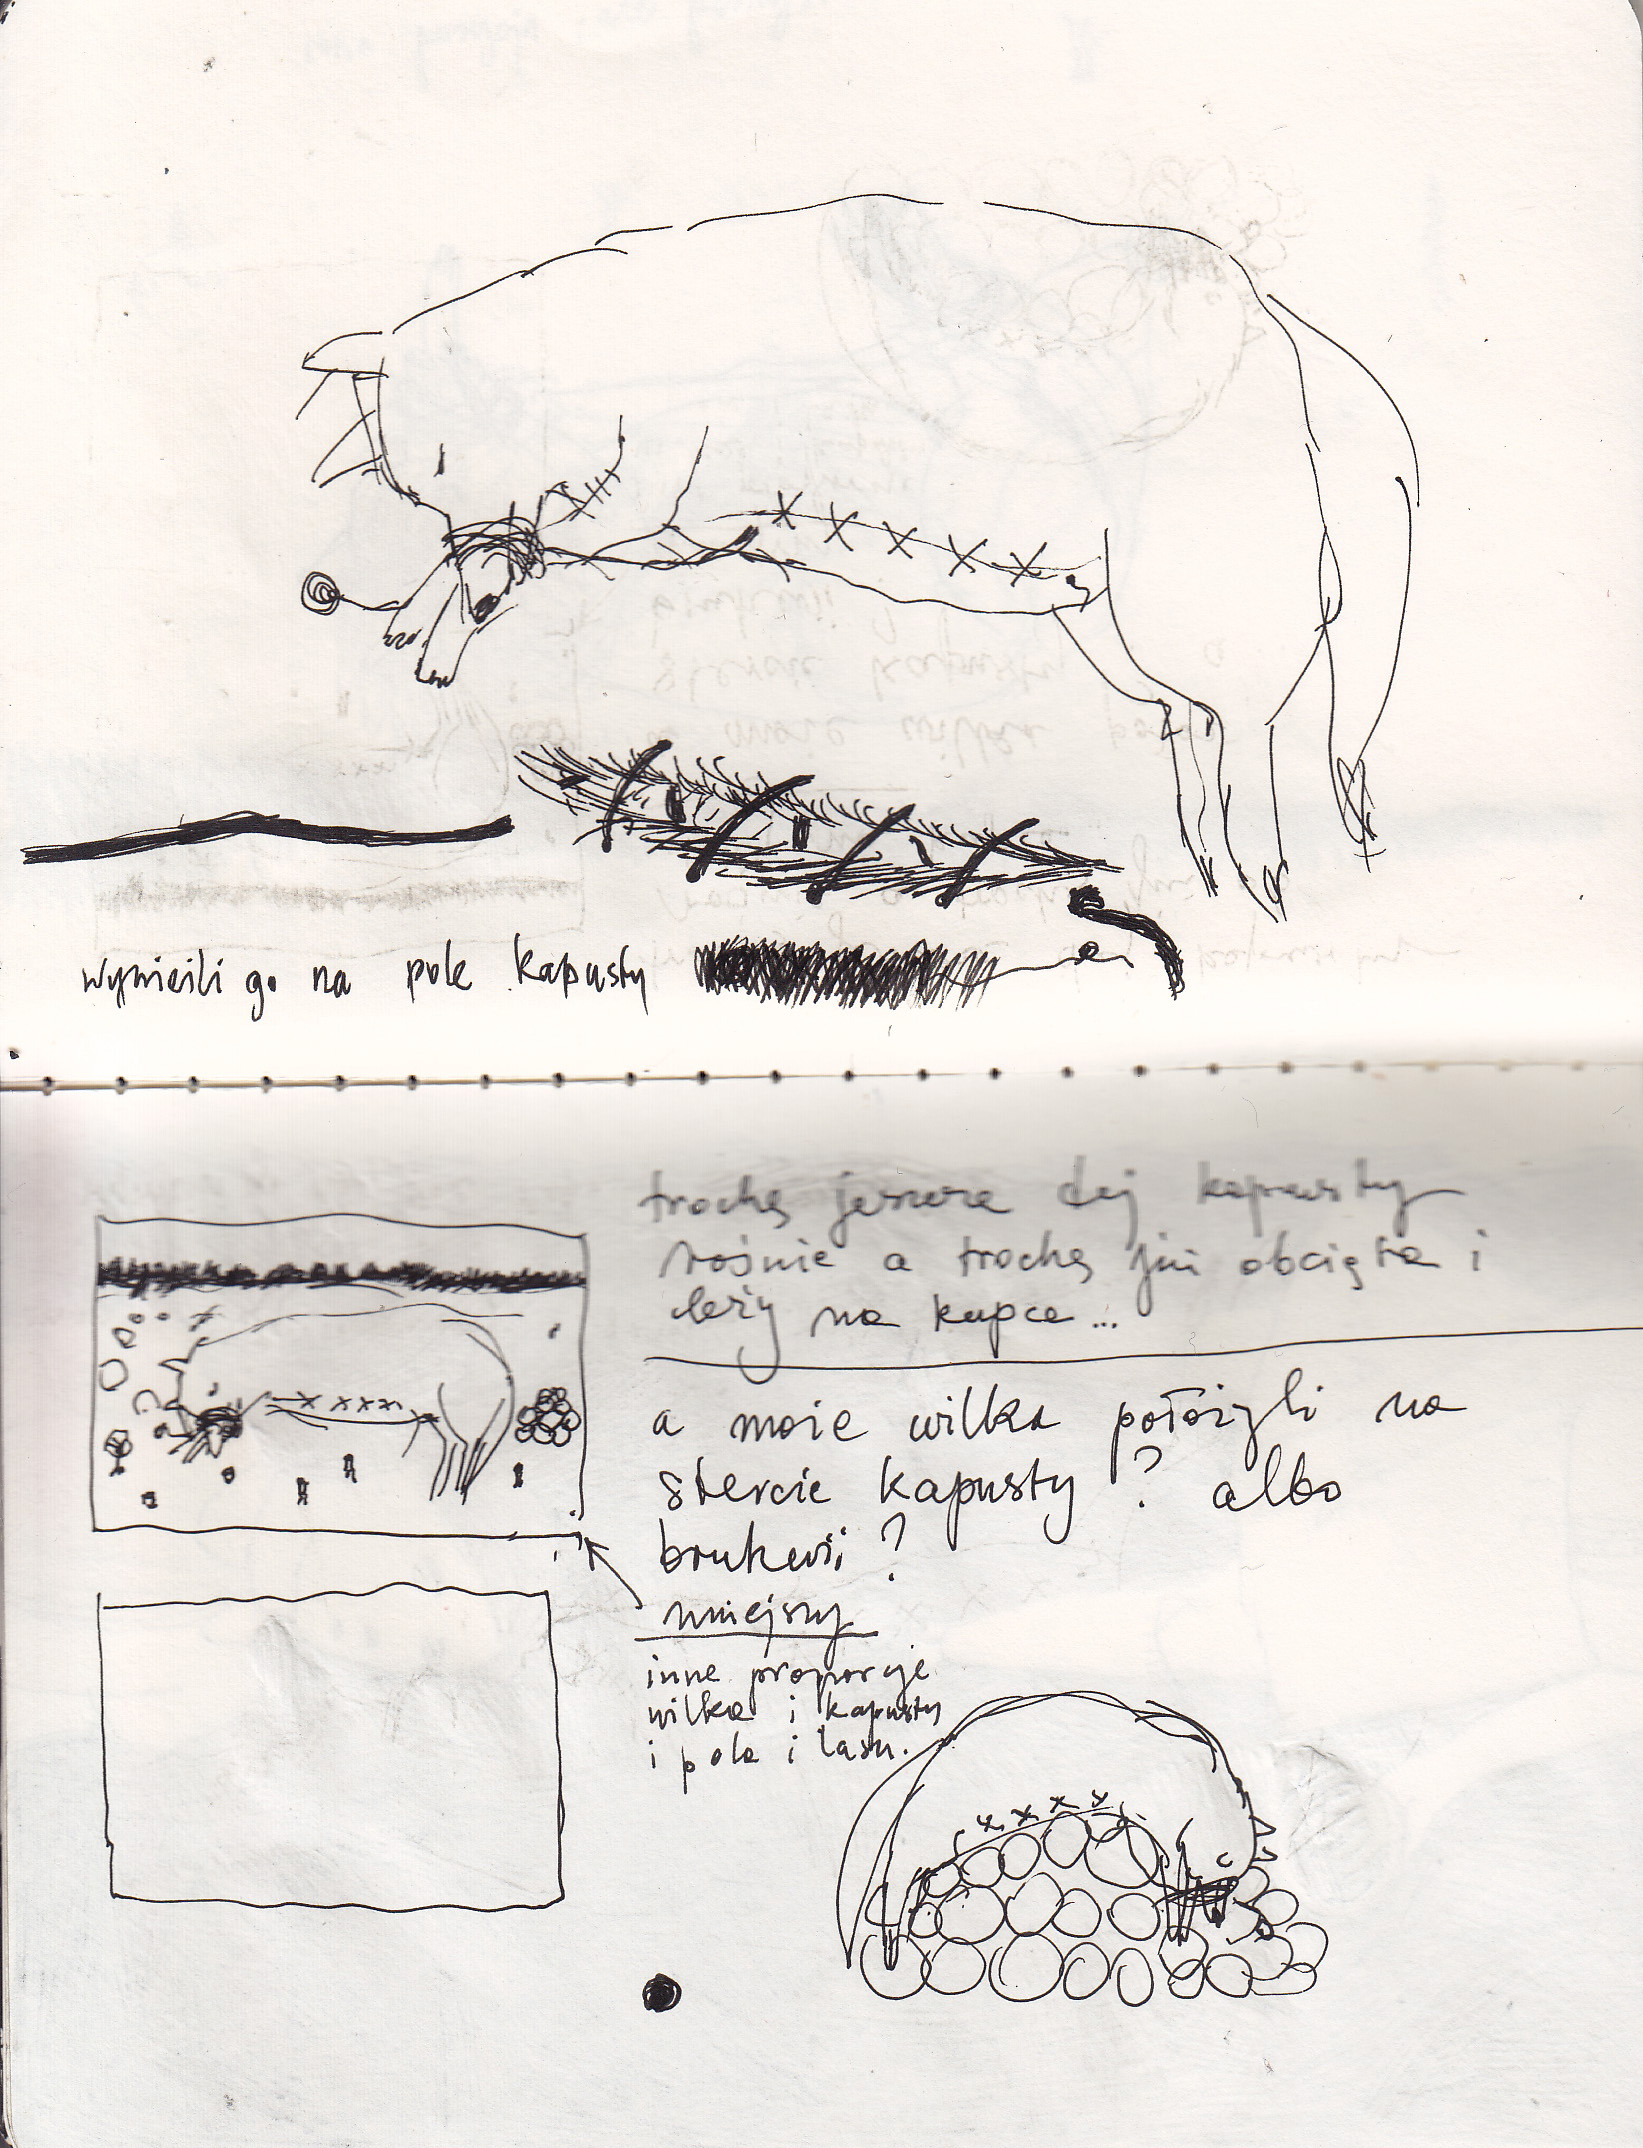 wynieśli go na pole kapusty
trochę jeszcze tej kapusty
rośnie a trochę już obcięta i
leży na kupce...
a może wilka położyli na
stercie kapusty? albo
brukwii?
mniejszy
inne proporcje
wilka i kapusty
i pola i lasu.